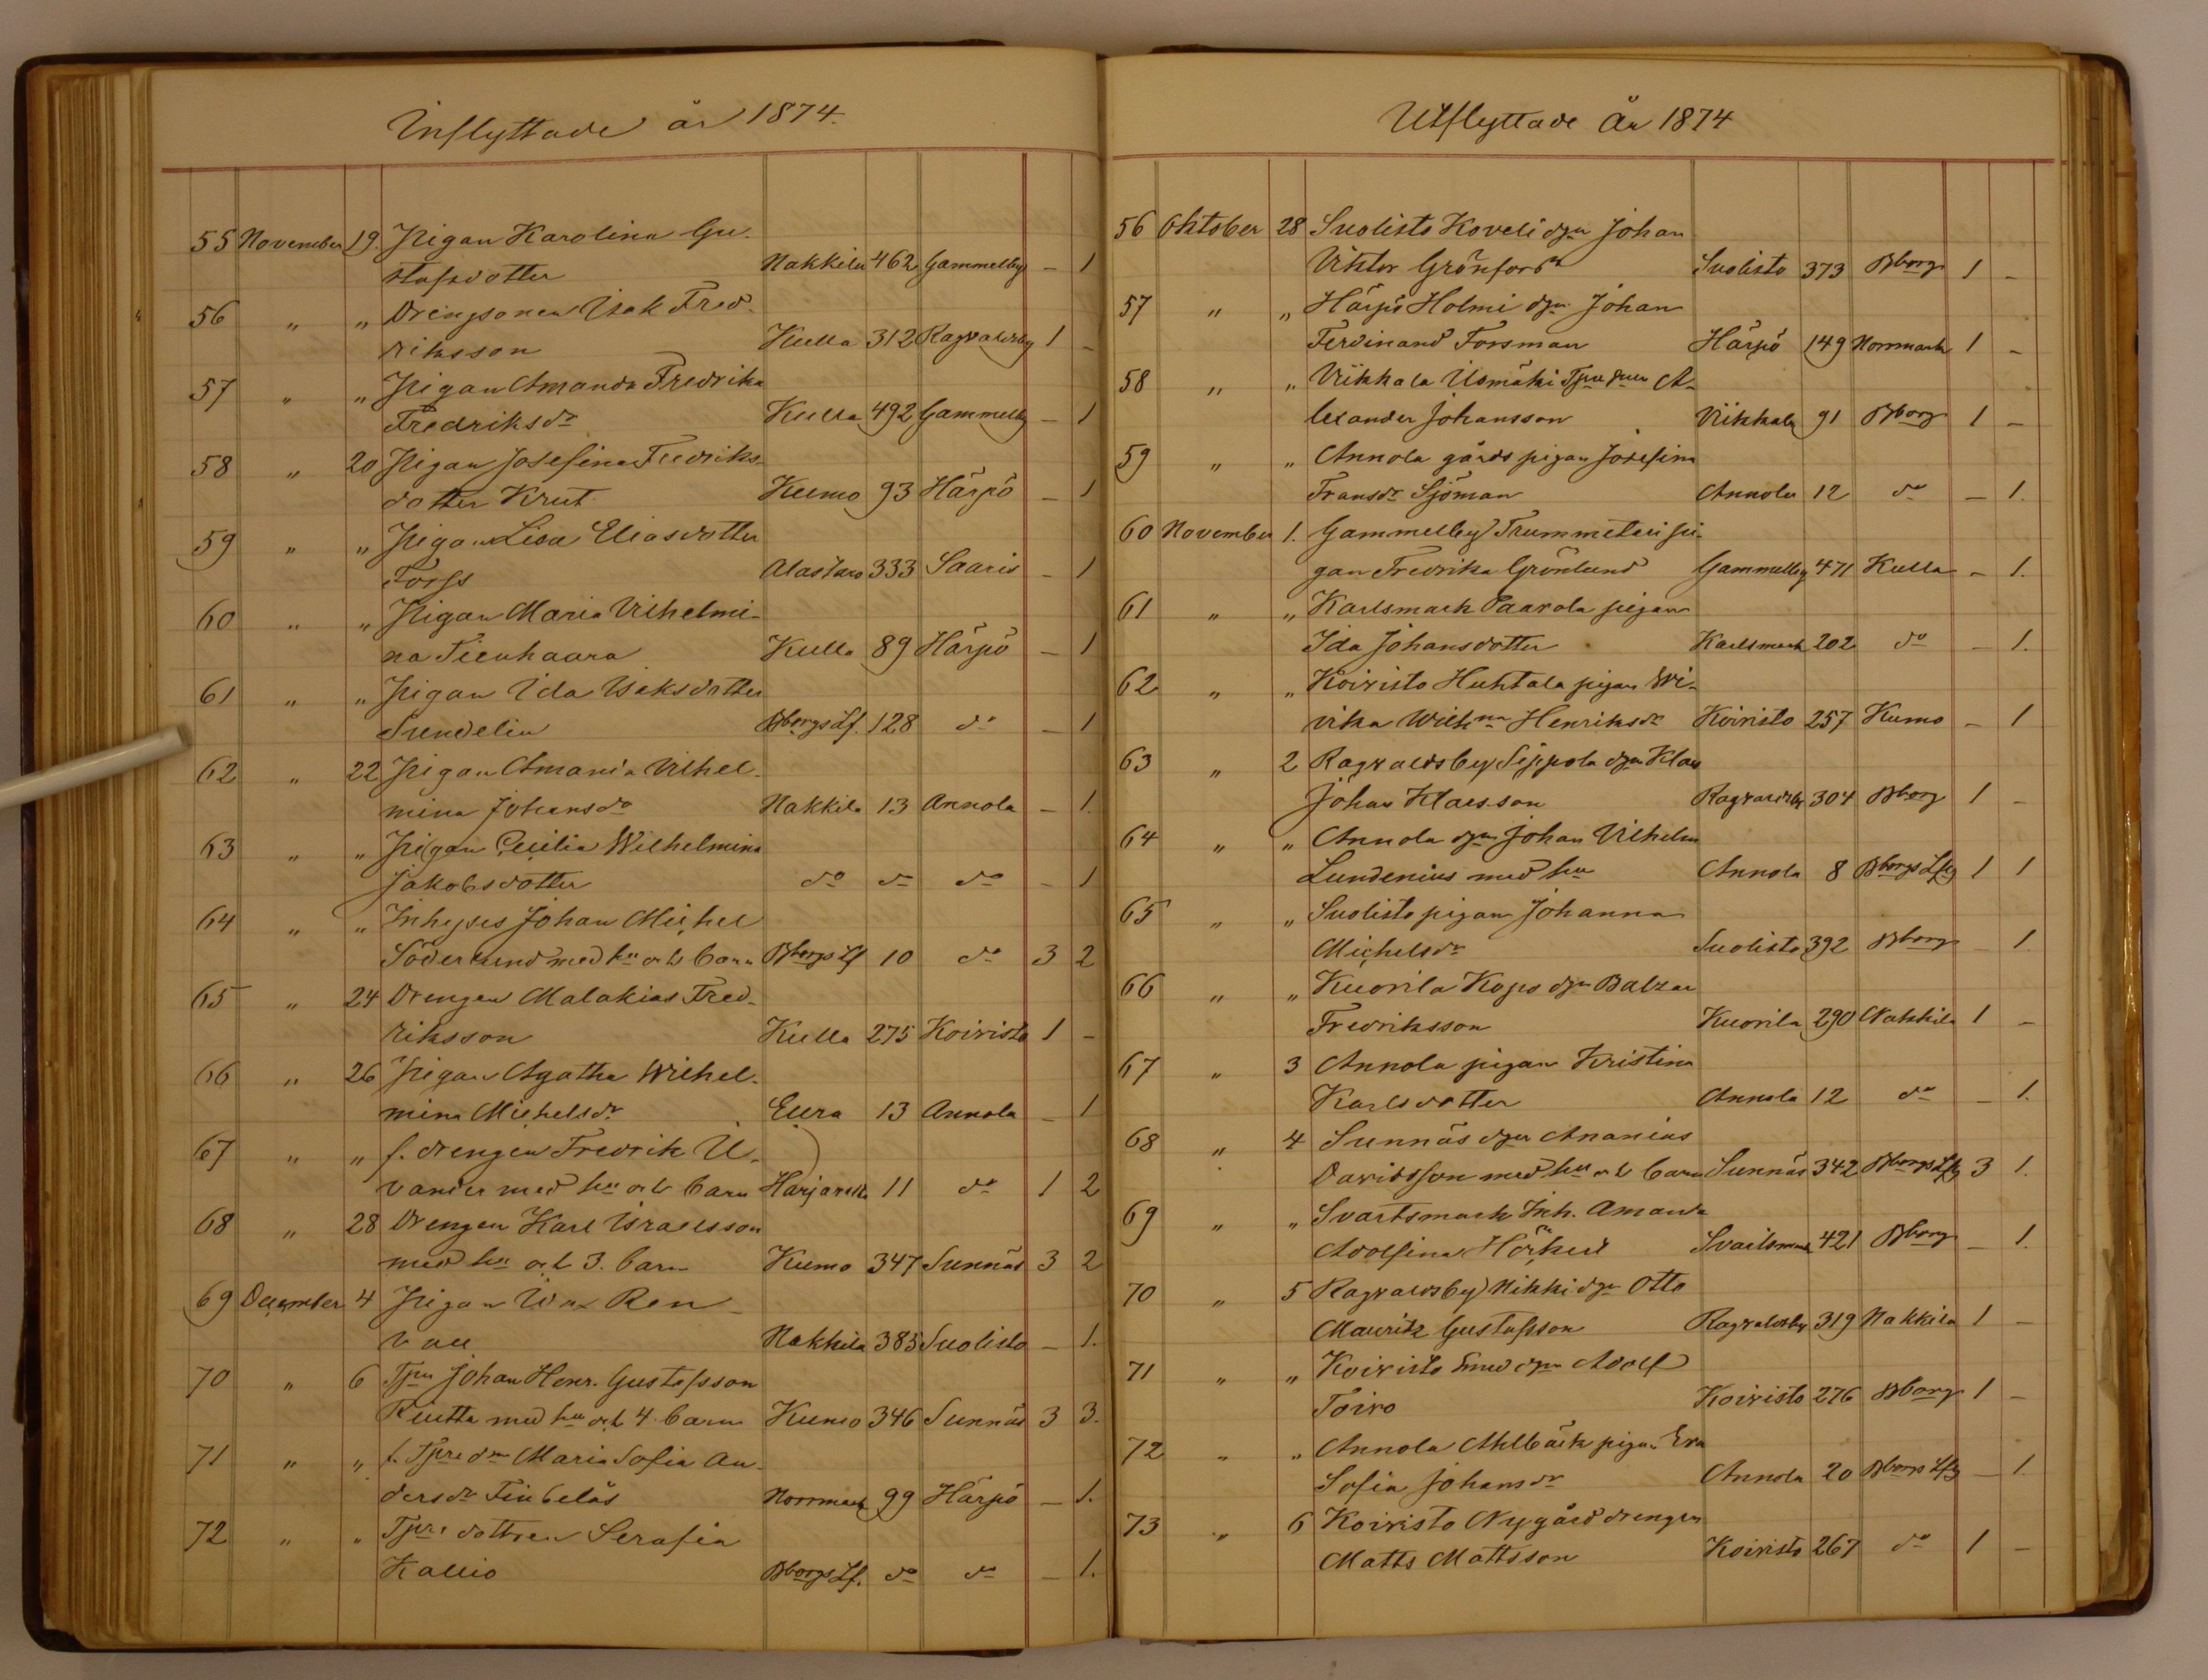 Inflyttade år 1874.
55 November 19. Pigan Karolina Gu-
stafsdotter Nakkila 462 Gammelby – 1
56 " " Drengsonen Isak Fred-
riksson Kulla 312 Ragvaldsby 1 –
57 " " Pigan Amanda Fredrika
Fredriksdr Kulla 492 Gammelby – 1
58 " 20 Pigan Josefina Fredriks-
dotter Krut Kumo 93 Härpö – 1
59 " " Pigan Lisa Eliasdotter
Forss Alastaro 333 Saaris – 1
60 " " Pigan Maria Vilhelmi-
na Tienhaara Kulla 89 Härpö – 1
61 " " Pigan Ida Isaksdotter
Sundelin Bborgs Lf. 128 do – 1
62 " 22 Pigan Amanda Vilhel-
mina Johansdr Nakkila 13 Annola – 1.
63 " " Pigan Cecilia Wilhelmina
Jakobsdotter do do do – 1
64 " " Inhyses Johan Michel
Söderlund med hu och barn Bborgs Lf 10 do 3 2
65 " 24 Drengen Malakias Fred-
riksson Kulla 275 Koivisto 1 –
66 " 26 Pigan Agatha Wilhel-
mina Michelsdr Eura 13 Annola – 1
67 " " f. drengen Fredrik U-
vander med hu och barn Harjavalta 11 do 1 2
68 " 28 Drengen Karl Israelsson
med hu och 3. barn Kumo 347 Sunnäs 3 2
69 December 4 Pigan
Nakkila 385 Suolisto – 1.
70 " 6 Tpn Johan Henr. Gustafsson
Riutta med hu och 4. barn Kumo 346 Sunnäs 3 3.
71 " " f. Tpredn Maria Sofia An-
dersdr Norrmark 99 Härpö – 1.
72 " " Tpre dottren Serafia
Kallio Bborgs Lf. do do – 1.
Utflyttade År 1874
56 Oktober 28 Suolisto Koveli dgn Johan
Viktor Grönfors Suolisto 373 Bborg 1 –
57 " " Härpö Holmi dgn Johan
Ferdinand Forsman Härpö 149 Norrmark 1 –
58 " " Viikkala Uomäki A-
lexander Johansson Viikkala 91 Bborg 1 –
59 " " Annola gårds pigan Josefina
Fransdr Sjöman Annola 12 do – 1.
60 November 1. Gammelby Trummetari pi-
gan Fredrika Grönlund Gammelby 471 Kulla – 1.
61 " " Karlsmark Paavola pigan
Ida Johansdotter Karlsmark 202 do – 1.
62 " " Koivisto Huhtala pigan
Henriksdr Koivisto 257 Kumo – 1
63 " 2 Ragvaldsby Seppola dgn Klas
Johan Klasson Ragvaldsby 304 Bborg 1 –
64 " " Annola dgn Johan Vilhelm
Lundenius med hu Annola 8 Bborgs Lfg 1 1
65 " " Suolisto pigan Johanna
Michelsdr Suolisto 392 Bborg – 1
66 " " Kuorila Kopo dgn Balzar
Fredriksson Kuorila 290 Nakkila 1 –
67 " 3 Annola pigan Kristina
Karlsdotter Annola 12 do – 1.
68 " 4 Sunnäs dgn Ananias
Davidsson med hu och barn Sunnäs 342 Bborgs Lfg 3 1.
69 " " Svartsmark Inh. Amanda
Adolfina Svartsmark 421 Bborg – 1.
70 " 5 Ragvaldsby Nikki dgn Otto
Mauritz Gustafsson Ragvaldsby 319 Nakkila 1 –
71 " " Koivisto Smed dgn Adolf
Toivo Koivisto 276 Bborg 1 –
72 " " Annola Ahlbäck pigan Eva
Sofia Johansdr Annola 20 Bborgs Lfg – 1
73 " 6 Koivisto Nygård drengen
Matts Mattsson Koivisto 267 do 1 –